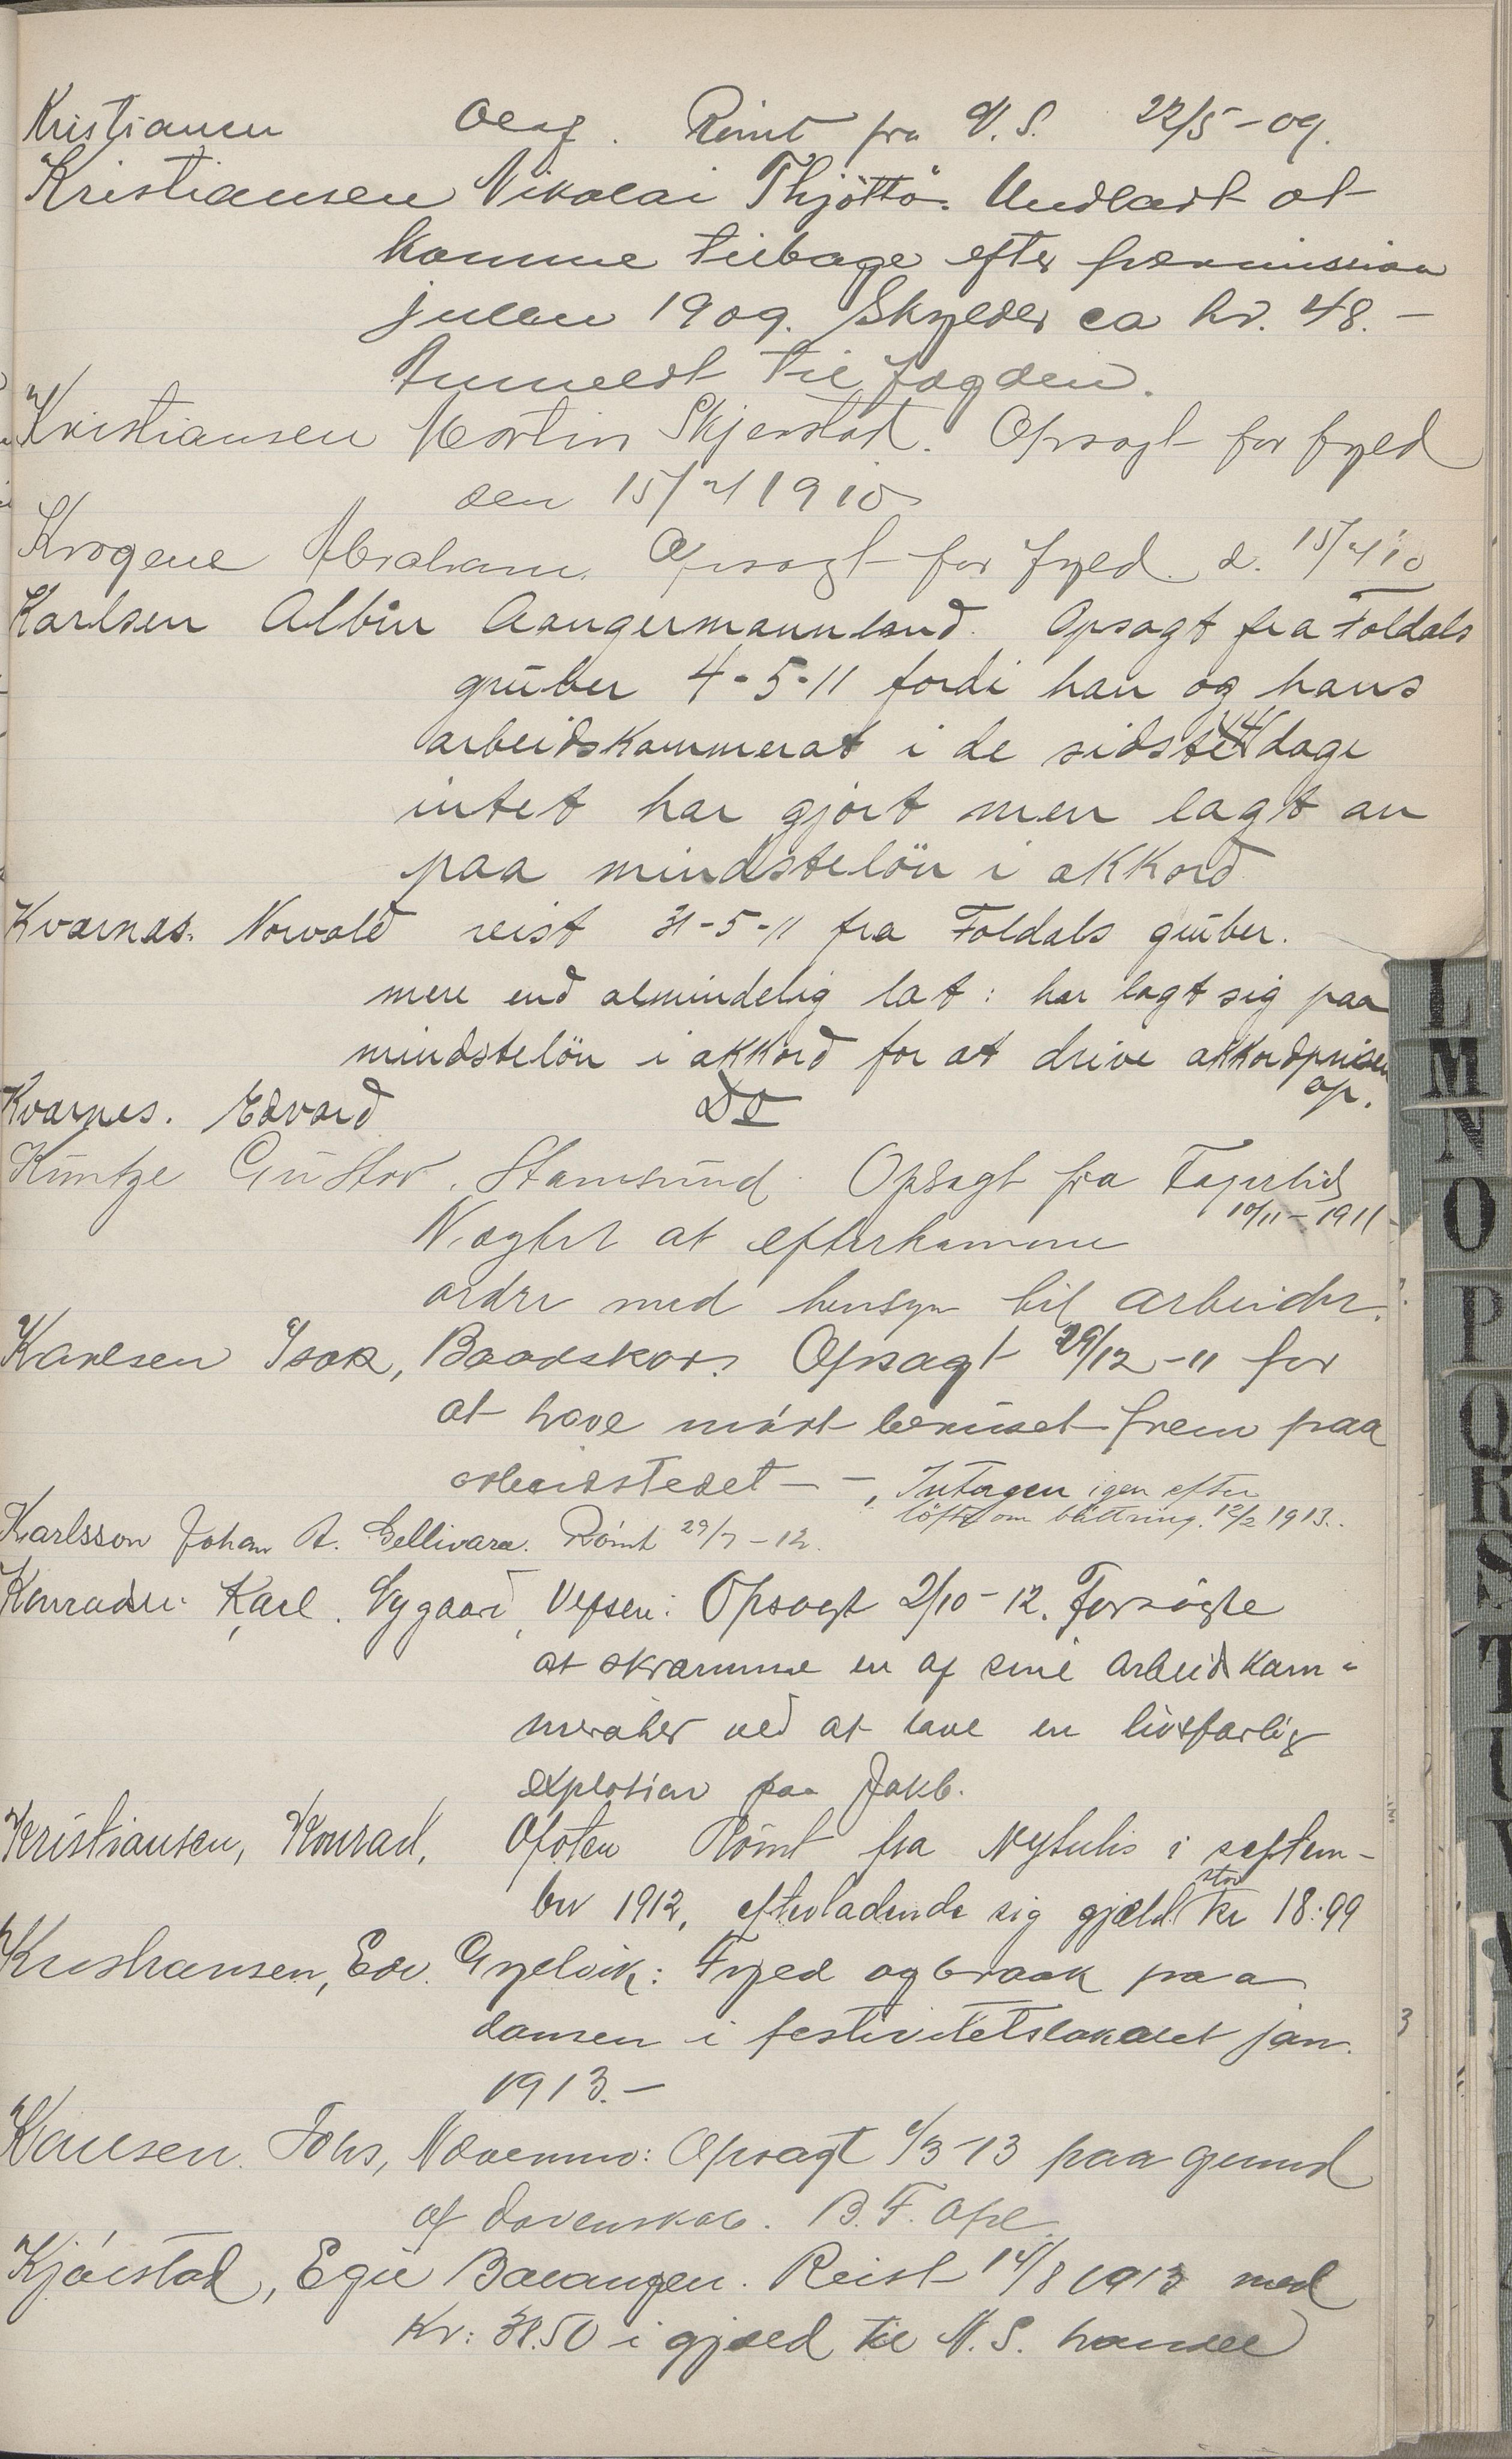 Kristiansen Olaf. Römt fra V. S. 22/5-09.
Kristiansen Nikolai Thjöttö. Undladt at
komme tilbage efter permission
julen 1909. Skylder ca kr. 48.-
Anmeldt til fogden.
Kristiansen Martin Skjerstad. Opsagt for fyld
den 15/4 1910
Krogene Abraham. Opsagt for fyld d. 15/4 10
Karlsen Albin Aangermannland. Opsagt fra Foldals
gruber 4-5-11 fordi han og hans
arbeidskammerat i de sidste 14 dage
intet har gjort men lagt an
paa mindstelön i akkord
Kvarnas. Norvald reist 31-5-11 fra Foldals gruber.
mere end almindelig lat: har lagt sig paa
mindstelön i akkord for at drive akkordprisen
op.
Kvarnes. Edvard Do
Küntze Gustav. Stamsund. Opsagt fra Fagerlid
10/11-1911
Nægtet at efterkomme
ordre med hensyn til arbeider.
Karlsen Isak, Baadskar. Opsagt 29/12-11 for
at have mödt beruset frem paa
arbeidstedet - -, Intagen igen efter
löfte om bättring. 12/2 1913.
Karlsson Johan A. Gellivara. Römt 29/7-12.
Konradsen Karl. Nygaard, Vefsen: Opsagt 2/10-12. Forsögte
at skræmme en af sine arbeidskam-
merater ved at lave en livsfarlig
explosion paa Jakb.
Kristiansen, Konrad, Ofoten Römt fra Nysulis i septem-
ber 1912, efterladende sig gjæld stor kr 18:99
Kristiansen, Edv. Gyelvik: Fyld og braak paa
dansen i festivitetslokalet jan.
1913.-
Karlsen. Johs, Næverna: Opsagt 1/3-13 paa grund
af dovenskab. B. F. Opl.
Kjörstad, Egil Balangen. Reist 14/8 1913 med
kr: 38.50 i gjæld til N. S. handel
L
M
N
O
P
Q
R
S
T
U
V